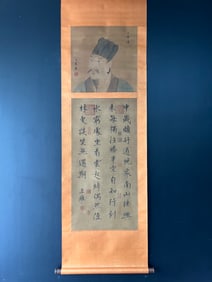 中歲頗好道晚家南山陲興
來每獨往勝事空自知行到
水窮處坐看雲起時偶然值
林叟談笑無還期